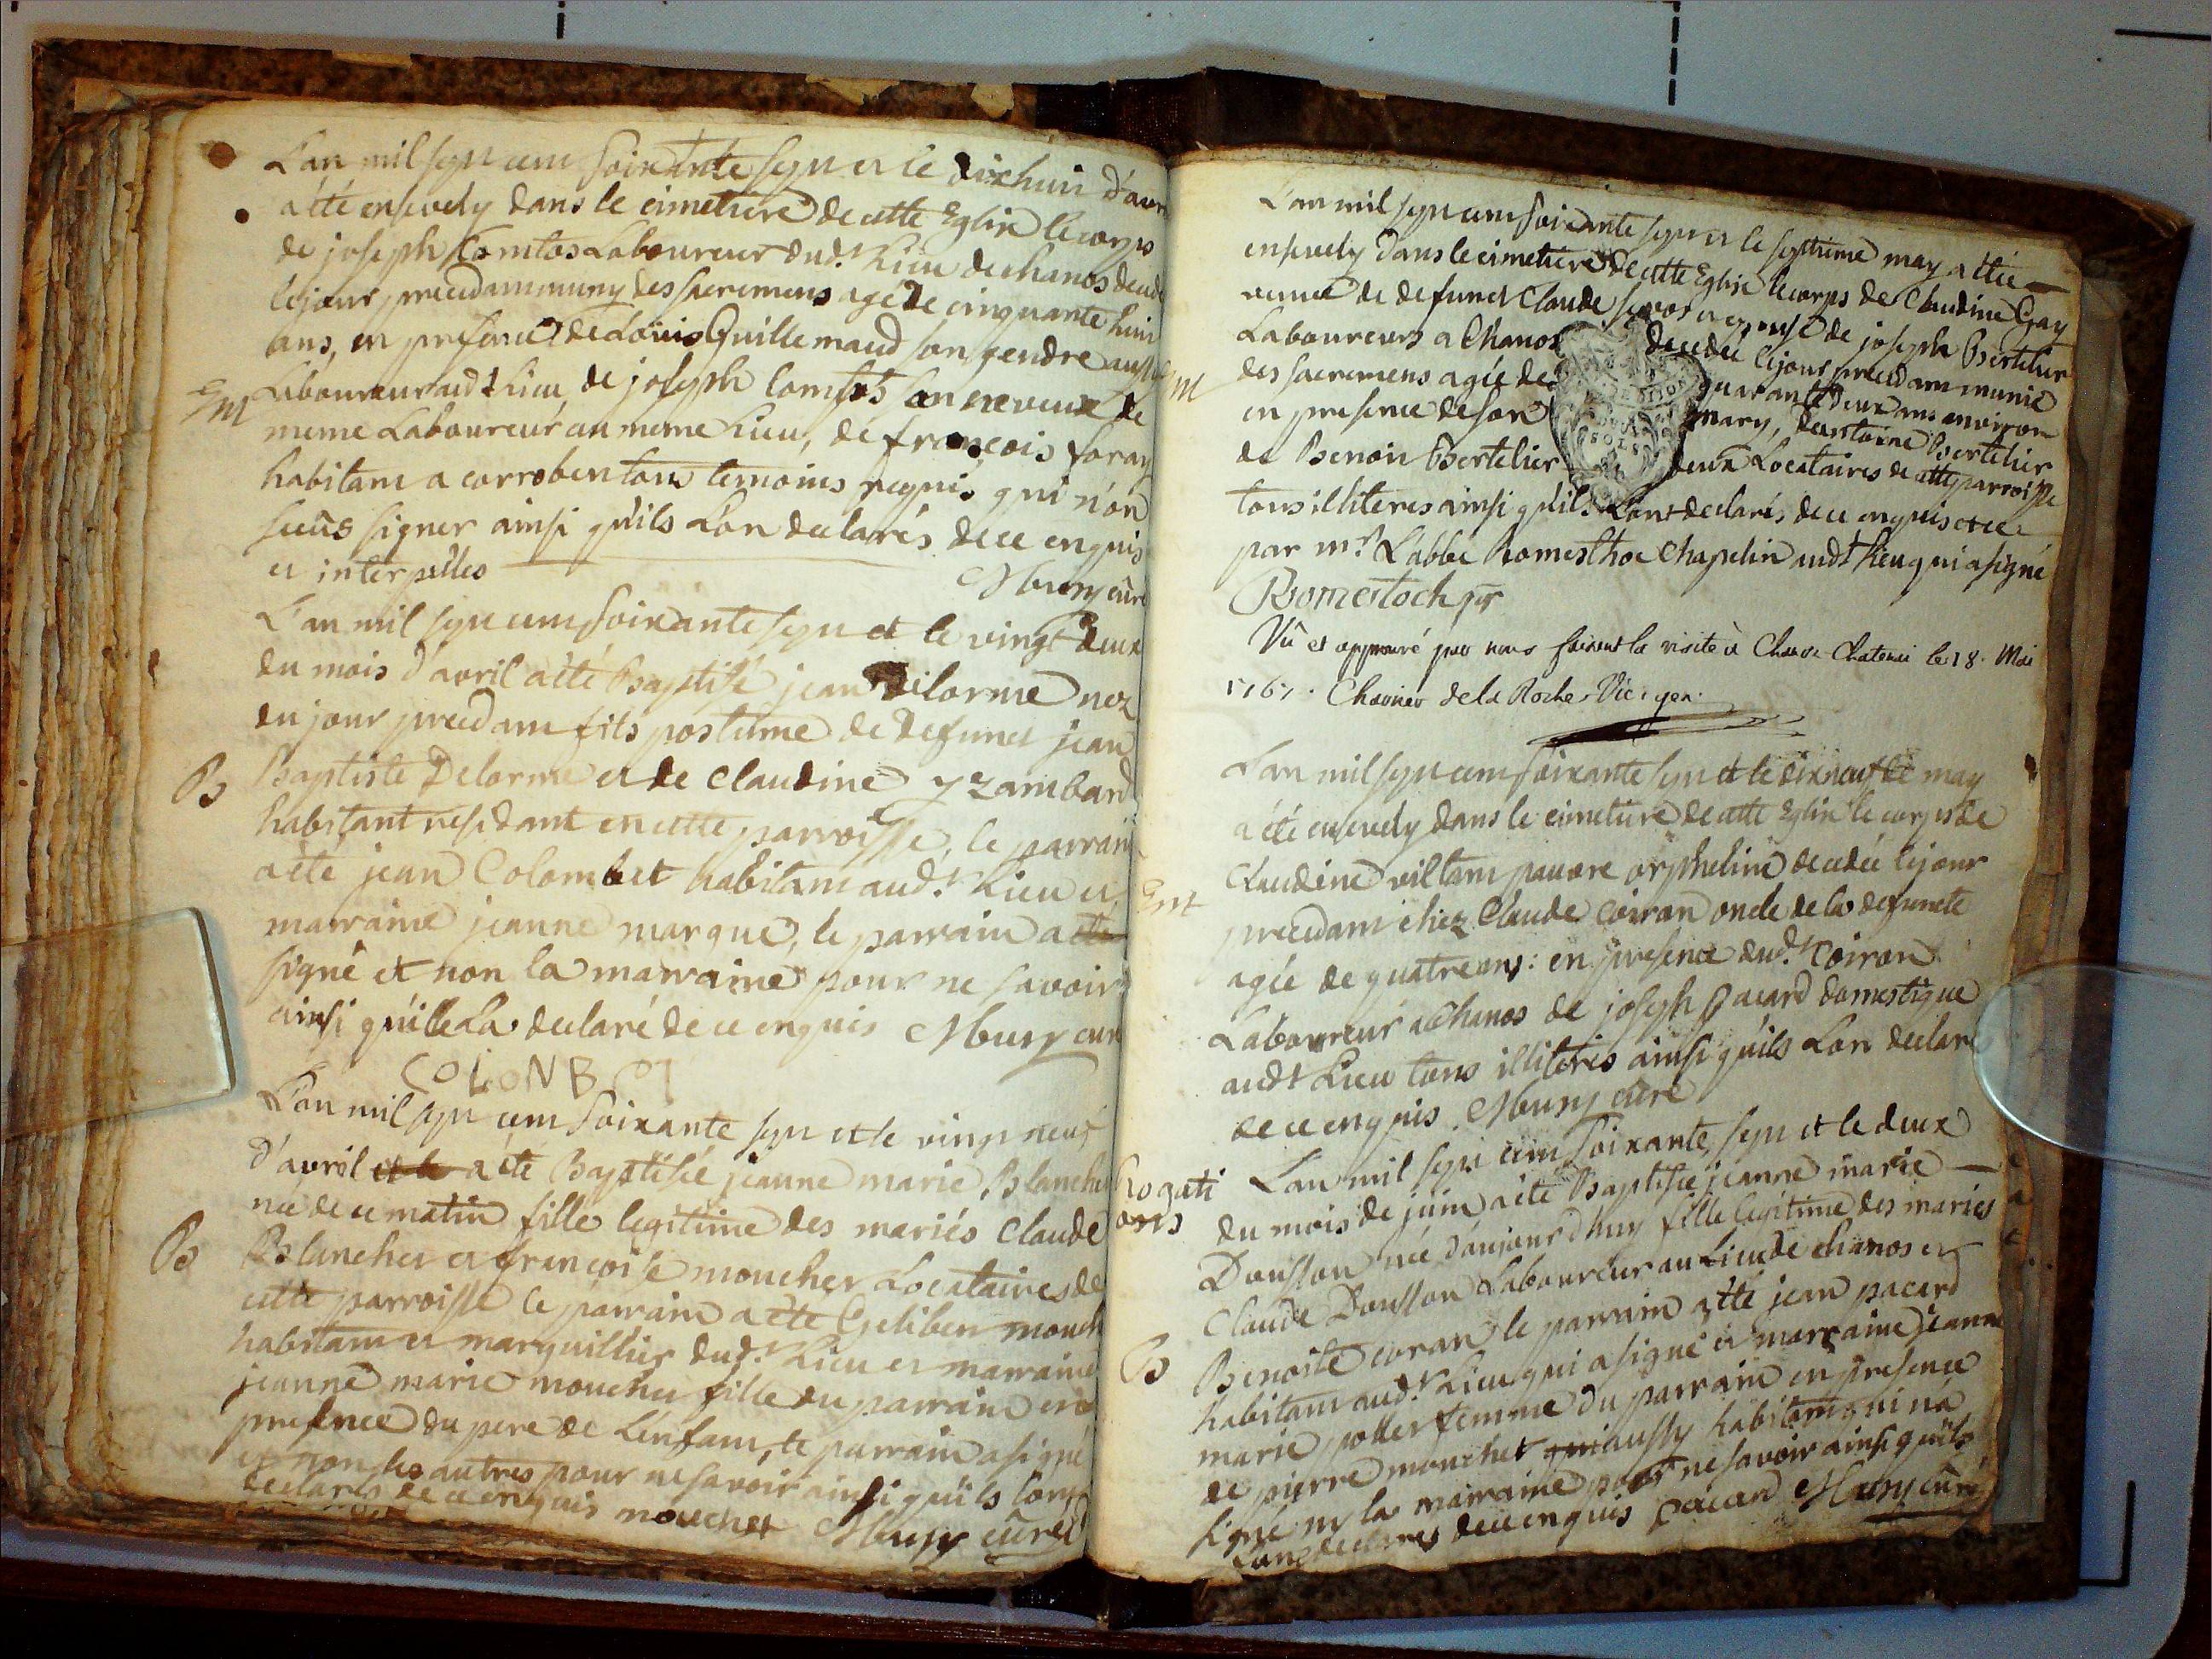 L'an mil sept cent soixante sept et le dixhuit d'avril
a été ensevely dans le cimetiere de cette Eglise le corps
de joseph Comtos Laboureur dud.t Lieu de chanos decedé
le jour precedant muny des sacremens agé de cinquante huit
ans, en presence de Loüis Guillemaud son gendre aussi
Em
Laboureur audt Lieu, de joseph Comtos son neveux de
meme Laboureur au meme Lieu, de françois foray
habitant a corroben tous temoins requis, qui n'on
sceüs signer ainsi qu'ils L'on declarés de ce enquis
et interpellés
Mbuny curé
L'an mil sept cent soixante sept et le vingt deux
du mois d'avril a été Baptisé jean Delorme nez
du jour precedant fils postume de defunct jean
B
Baptiste Delorme et de Claudine yzambard
habitant residant en cette parroisse, le parrain
a été jean Colombet habitant aud.t Lieu et
marraine jeanne marque, le parrain a
signé et non la marraine pour ne savoir
ainsi qu'elle La declaré de ce enquis Mbuny curé
COLONB
L'an mil sept cent soixante sept et le vingt neuf
d'avril et le a été Baptisée jeanne marie Blanchet
née de ce matin fille legitime des mariés Claude
B
Blanchet et françoise mouchet Locataires de
cette parroisse le parrain a été Gelibert mouchet
habitant et marguillier dud.t Lieu et marraine
jeanne marie mouchet fille du parrain en
presence du pere de L'enfant, le parrain a signé
et non les autres pour ne savoir ainsi qu'ils l'ont
declarés de ce enquis mouchet Mbuny curé
L'an mil sept cent soixante sept et le septieme may a été
ensevely dans le cimetiere de cette Eglise le corps de Claudine Gay
veuve de defunct Claude et epouse de joseph Bertelier
Laboureurs a Chanos decedée le jour precedant munie
Em
des sacremens agée de quarante deux ans environ
en presence de son mary, d'antoine Bertelier
de Benoit Bertelier deux Locataires de cette parroisse
tous illiteres ainsi qu'ils L'ont declarés de ce enquis et ce
par mr L'abbé Romesthoc Chapelin audt Lieu qui a signé
Romestoch ptr
Vû et approuvé par nous faisant la visite à Chatenai le 18. Mai
1767. Charrier de la Roche Vic. gen.
L'an mil sept cent soixante sept et le dixneuf de may
a été ensevely dans le cimetiere de cette Eglise le corps de
Em
Claudine villam pauvre orpheline decedée le jour
precedant chez Claude Coiran oncle de la defuncte
agée de quatre ans: en presence dud.t Coiran
Laboureur a Chanos de joseph pacard domestique
audt Lieu tous illiterés ainsi qu'ils L'on declaré
de ce enquis. Mbuny curé
Rogati
ons
L'an mil sept cent soixante sept et le deux
du mois de juin a été Baptisée jeanne marie
Dousson née d'aujourd'huy fille legitime des mariés
Claude Dousson Laboureur au Lieu de chanos et
B
Benoite coran le parrain a été jean pacard
habitant aud.t Lieu qui a signé et marraine jeanne
marie pollet femme du parrain en presence
de pierre mouchet qui aussy habitant qui n'a
signé ny la marraine pour ne savoir ainsi qu'ils
L'ont declarés de ce enquis pacard Mbuny curé